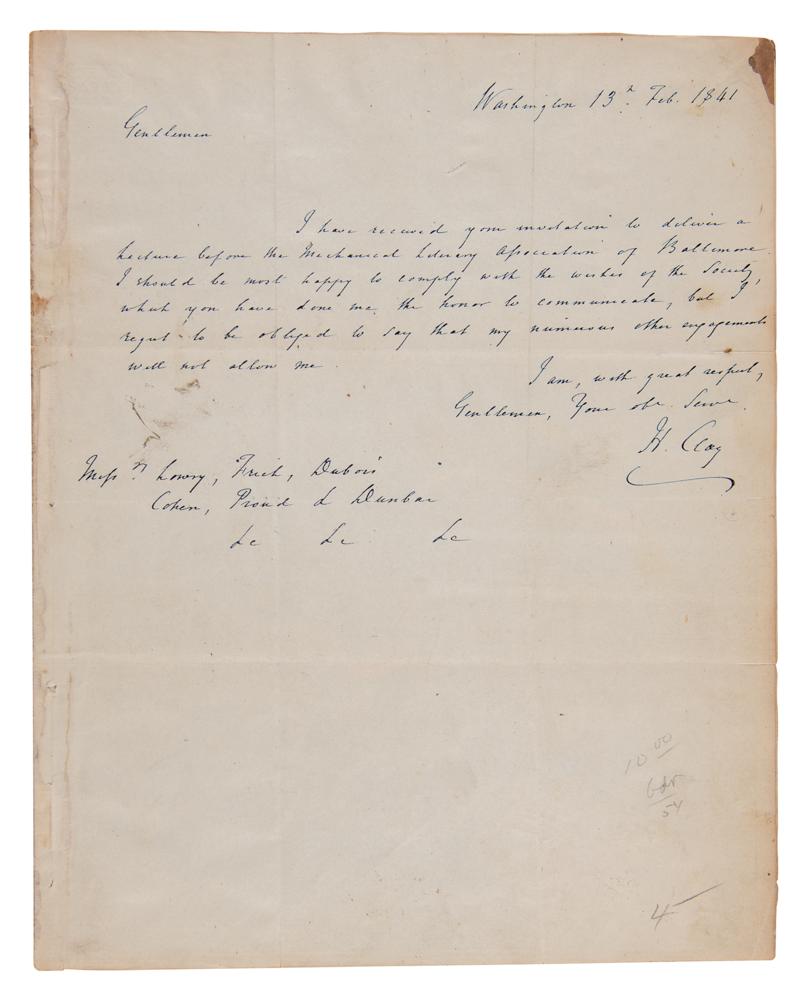 Washington 13th. Feb. 1841
Gentlemen
I have received your invitation to deliver a
Lecture before the Mechanical Literary Association of Baltimore.
I should be most happy to comply with the wishes of the Society,
which you have done me the honor to communicate, but I
regret to be obliged to say that my numerous other engagements
will not allow me.
I am, with great respect,
Gentlemen, Your obt. Servt.
H. Clay
Messrs. Lowry, Frick, Dubois
Cohen, Proud & Dunbar
&c &c &c
10 00
54
4